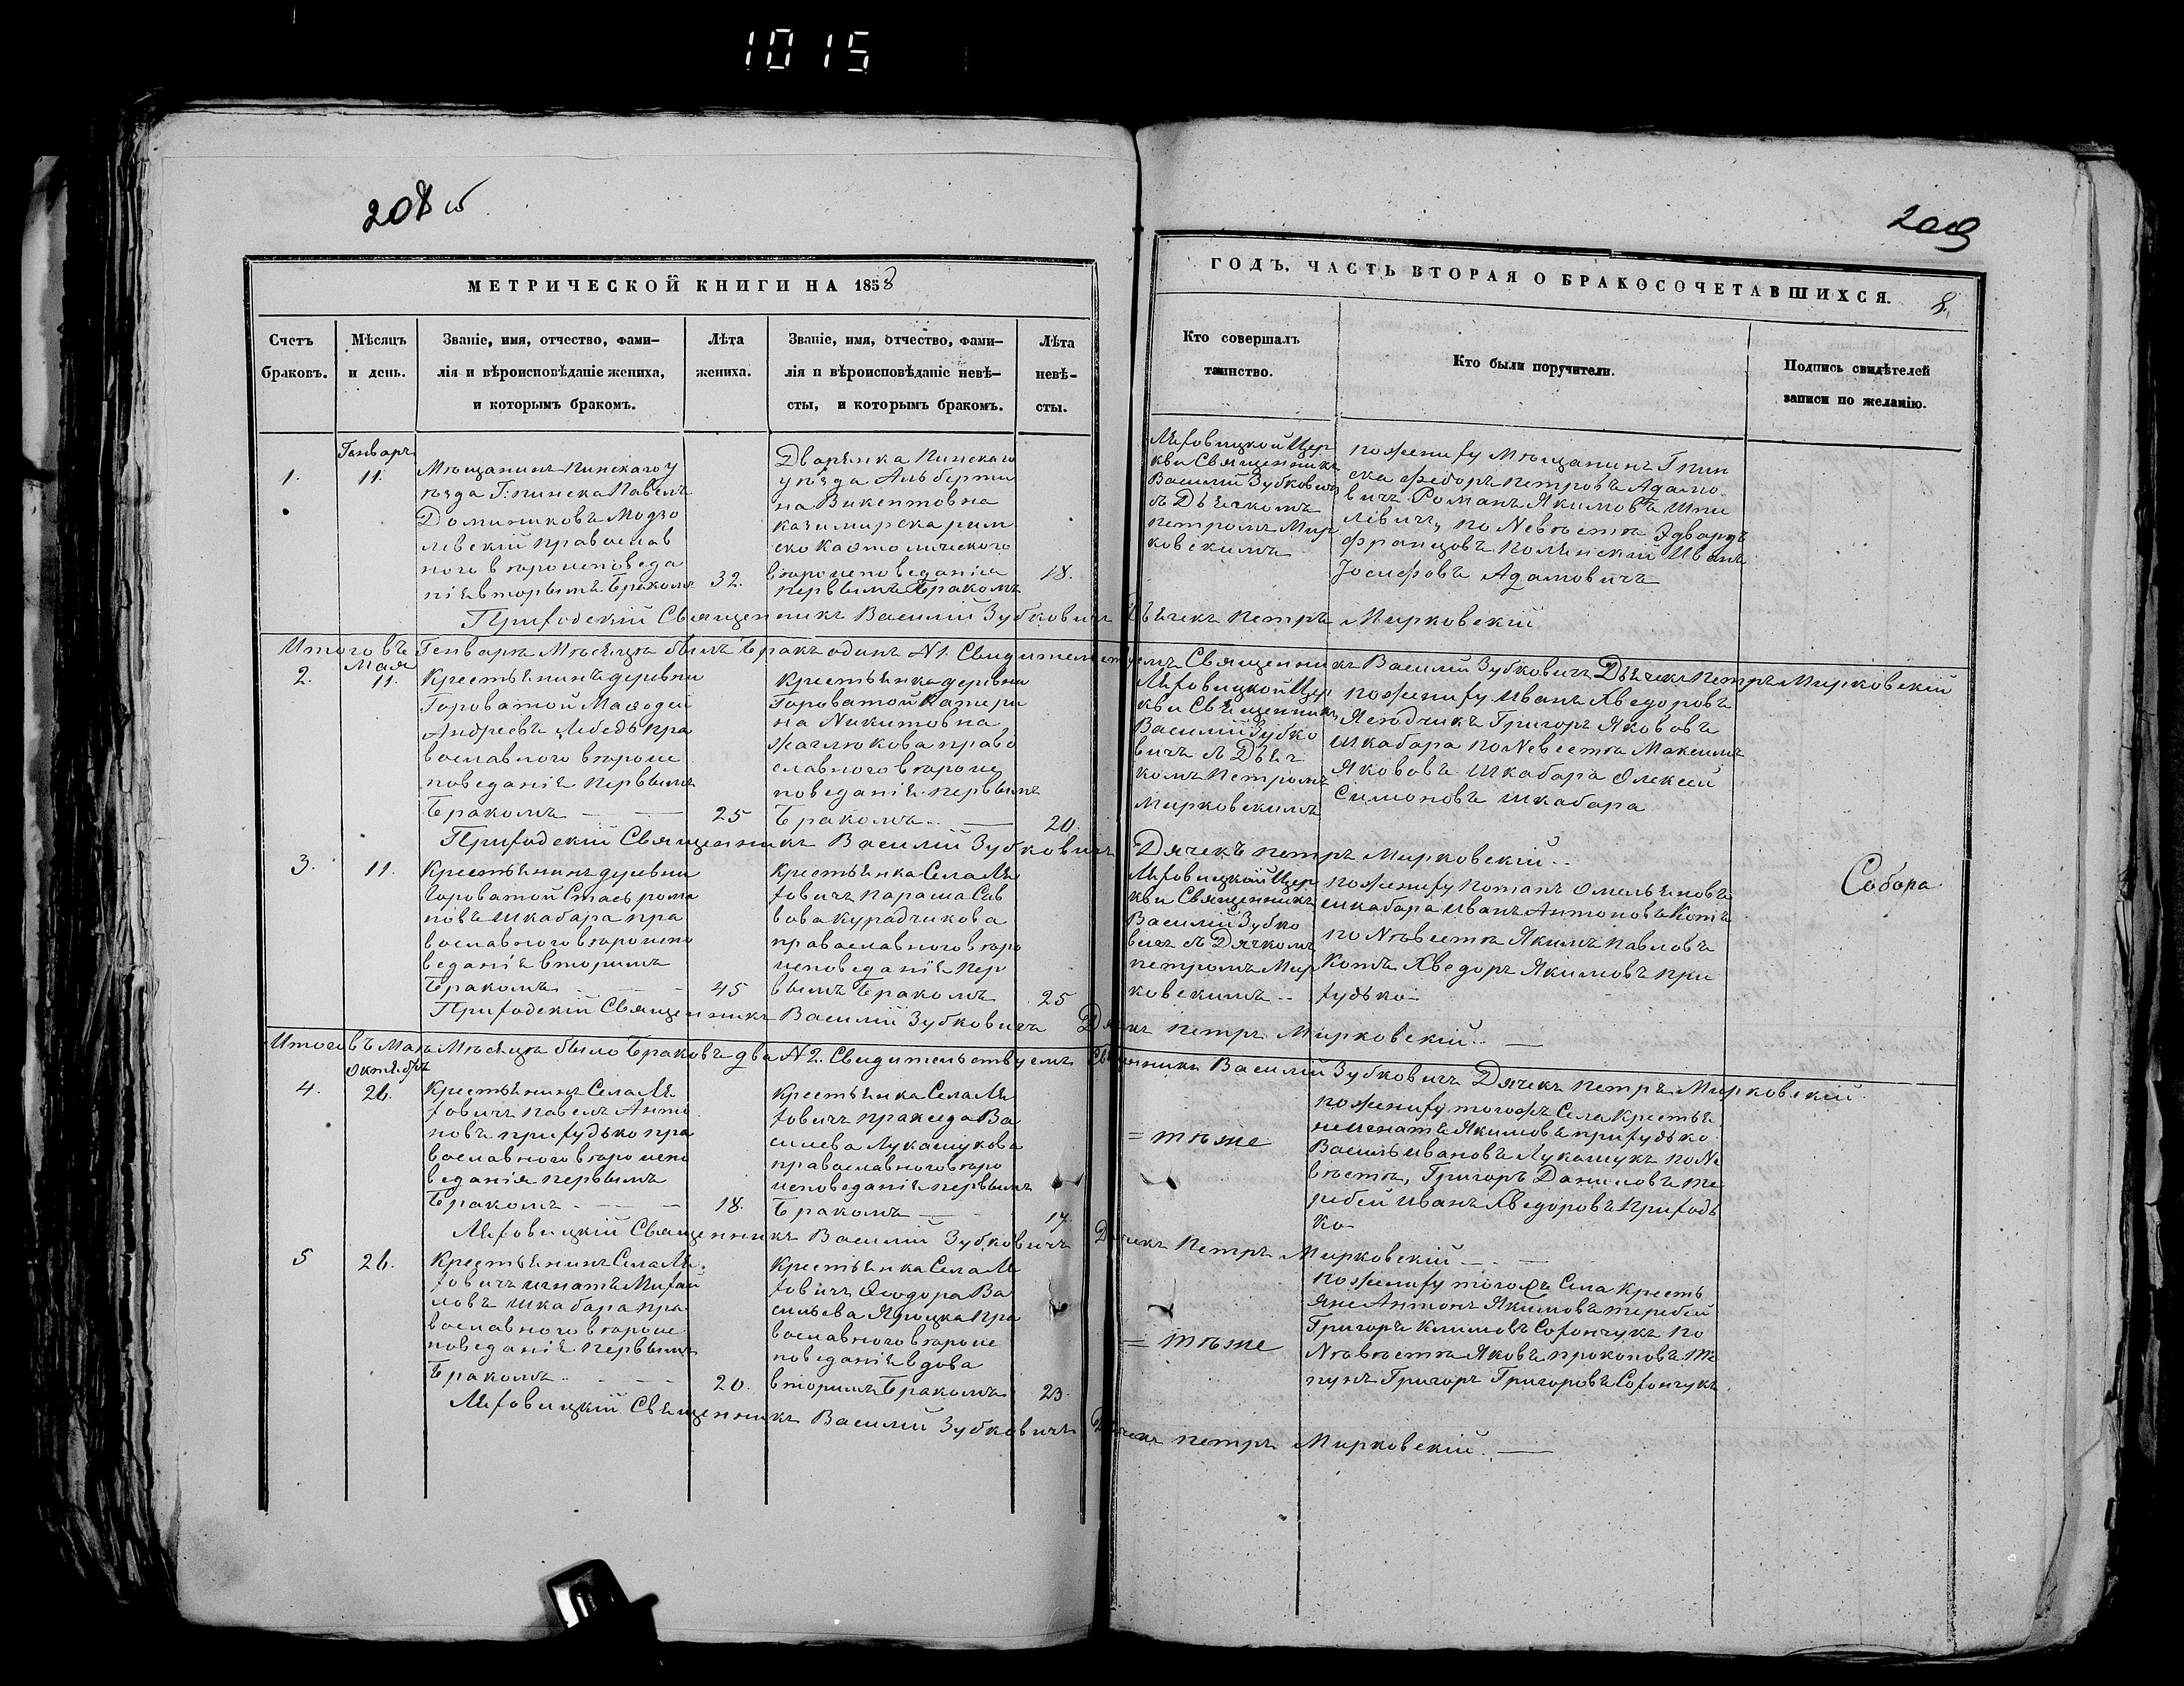 1015
208 об
209
МЕТРИЧЕСКОЙ КНИГИ НА 1858
ГОДЪ. ЧАСТЬ ВТОРАЯ О БРАКОСОЧЕТАВШИХСЯ.
8.
Счетъ
браковъ.
Мѣсяцъ
и день.
Званіе, имя, отчество, фами-
лія и вѣроисповѣданіе жениха,
и которымъ бракомъ.
Лѣта
жениха.
Званіе, имя, отчество, фами-
лія и вѣроисповѣданіе невѣ-
сты, и которымъ бракомъ.
Лѣта
невѣ-
сты.
Кто совершалъ
таинство.
Кто были поручители.
Подпись свидѣтелей
записи по желанію.
Генваръ
1.
11.
Мѣщанинъ Пинскаго у
ѣзда Г: пинска Павелъ
Доминиковъ Модзо
левскій православ
ного вѣроисповеда
нія вторымъ бракомъ
32.
Дворянка Пинскаго
уѣзда Альберти
на Викентовна
казимирска рим
ско Католического
вѣроисповеданія
первымъ Бракомъ
18.
Ляховицкой Цер
кви Священникъ
Василій Зубковичъ
съ Дьячкомъ
петромъ Мир
ковскимъ
пожениху Мѣщанинъ Г пин
ска Федоръ петровъ Адамо
вичъ Романъ Якимовъ Шпи
левичъ, по Невѣсте Эдвардъ
францовъ полянскій Иванъ
Іосифовъ Адамовичъ
Приходскій Священникъ Василій Зубковичъ Дьячекъ петръ Мирковскій
Итого въ Генваръ Мѣсяцъ былъ бракъ одинъ N 1. Свидительствуемъ Священникъ Василій Зубковичъ Дьячекъ петръ Мирковскій
Мая
2.
11.
Крестьянинъ деревни
Гороватой Мафодей
Андреевъ Лебедь пра
вославного вѣроис
поведанія первымъ
Бракомъ
25
Крестьянка деревни
Гороватой Катери
на Никитовна
Жаглюкова право
славного вѣроис
поведанія первымъ
Бракомъ
20.
Ляховицкой Цер
кви Священникъ
Василій Зубко
вичъ съ Дьяч
комъ Петромъ
Мирковскимъ
пожениху Иванъ Хведоровъ
Григоръ Яковов
Шкабара по Невесте Максимъ
Якововъ Шкабара Олексей
Симоновъ Шкабара
Приходскій Священникъ Василій Зубковичъ Дячекъ петръ Мирковскій
3.
11.
Крестьянинъ деревни
Гороватой Стась рома
новъ Шкабара пра
вославного вѣроиспо
веданія вторимъ
Бракомъ
45
Крестьянка Села Ля
ховичъ параша Сав
вова Курадчикова
православного вѣро
исповеданія пер
вымъ Бракомъ
25
Ляховицкой Цер
кви Священникъ
Василій Зубко
вичъ съ Дячкомъ
петромъ Мир
ковскимъ
пожениху Потапъ Омельяновъ
Шкабара Иванъ Антоновъ Котъ
по Невѣсте Якимъ Павловъ
Котъ Хведоръ Якимовъ при
ходько
Собора
Приходскій Священникъ Василій Зубковичъ Дячекъ петръ Мирковскій
Итого въ Маѣ Мѣсяцѣ было Браковъ два N 2. Свидительствуемъ Священникъ Василій Зубковичъ Дячекъ петръ Мирковскій
Октябрь
4.
26.
Крестьянинъ Села Ля
ховичъ павелъ Анто
новъ приходько пра
вославного вѣроиспо
веданія первымъ
Бракомъ
18.
Крестьянка Села Ля
ховичъ пракседа Ва
силева Лукашукова
православного вѣро
исповеданія первымъ
Бракомъ
17.
= тѣже
пожениху тогожъ Села Крестья
не Игнатъ Якимовъ приходько
Василь Ивановъ Лукашукъ по Не
вѣсте, Григоръ Даниловъ Те
ребей Иванъ Хведоровъ Приходь
ко
Ляховицкій Священникъ Василій Зубковичъ Дячекъ Петръ Мирковскій
5
26.
Крестьянинъ Села Ля
ховичъ Игнатъ Михай
ловъ Шкабара пра
вославного вѣроис
поведанія первымъ
Бракомъ
20.
Крестьянка Села Ля
ховичъ Феодора Ва
сильева Яроцка пра
вославного вѣроис
поведанія вдова
вторимъ Бракомъ
23.
= тѣже
пожениху тогожъ Села Кресть
яне Антонъ Якимовъ теребей
Григоръ Климовъ Сохончукъ по
Невѣсте Яковъ прокоповъ
Григоръ Григоровъ Сохончукъ
Ляховицкій Священникъ Василій Зубковичъ Дячекъ петръ Мирковскій